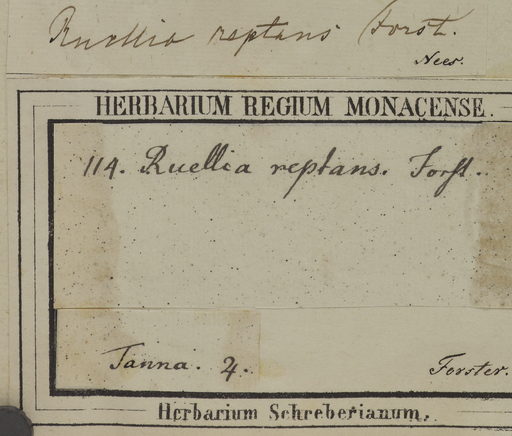 Ruellia reptans Forst.
Nees.
HERBARIUM REGIUM MONACENSE.
114. Ruellia reptans. Forst.
Tanna. 4.
Forster.
Herbarium Schreberianum.